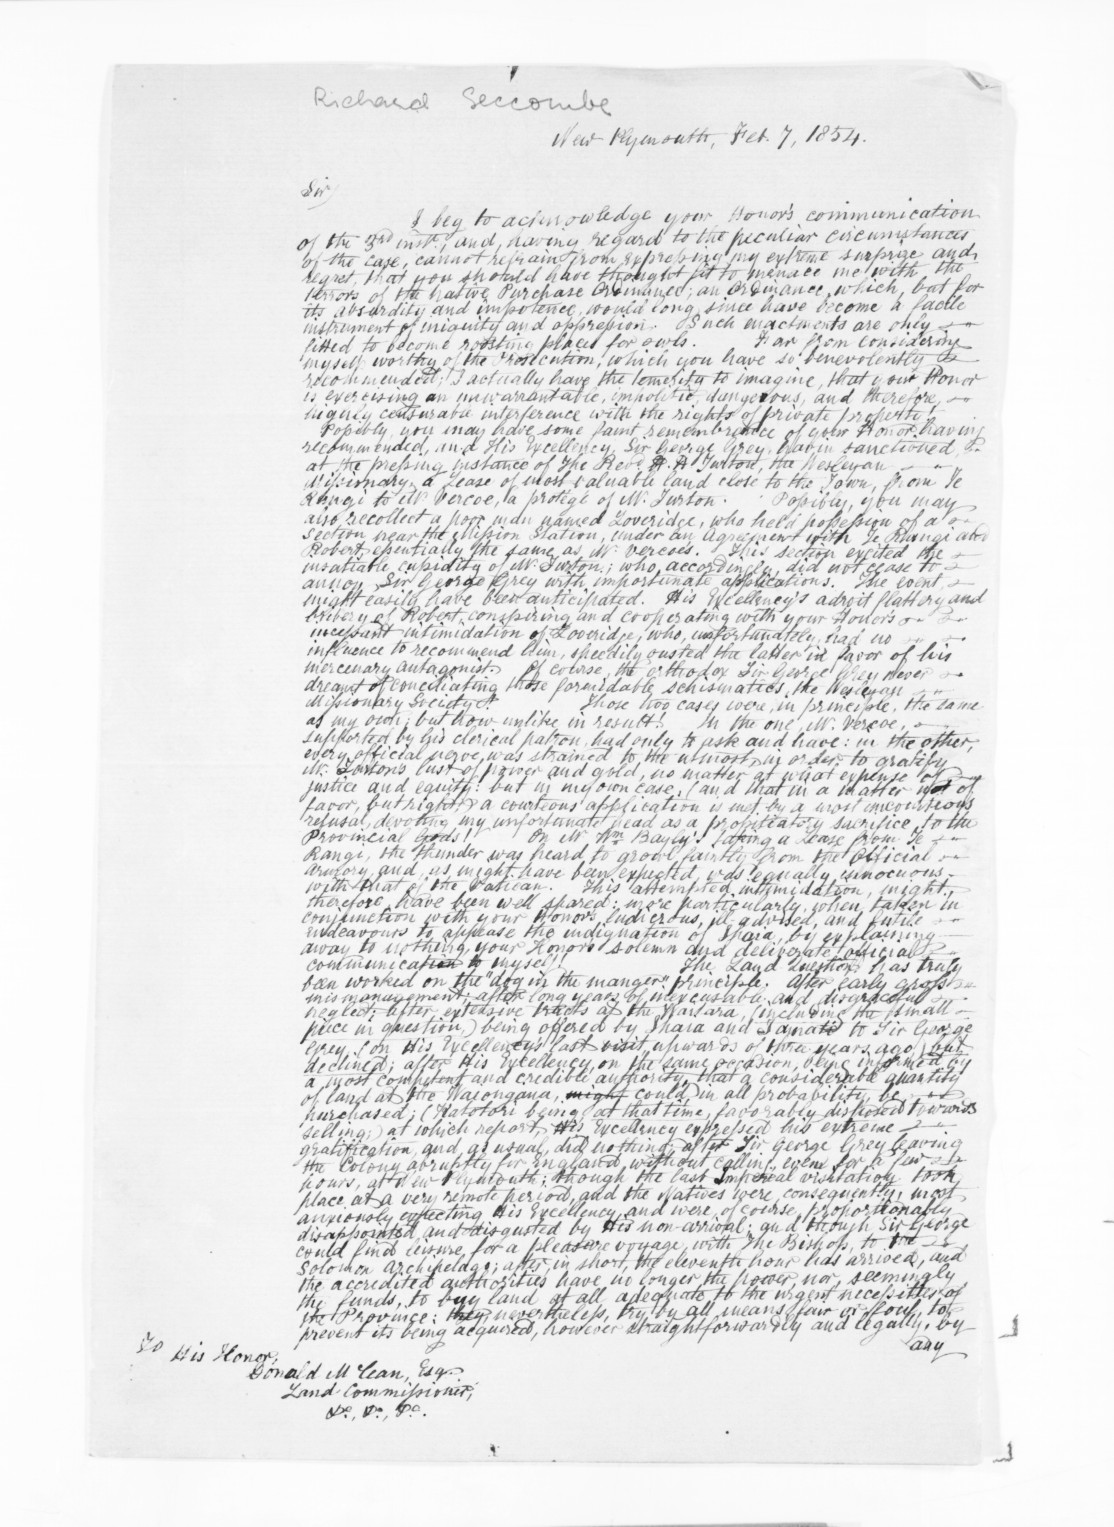 Richard Seccombe
New Plymouth, Feb. 7, 1854.
Sir,
I beg to acknowledge your Honor's communication
of the 3rd inst., and, having regard to the peculiar circumstances
of the case, cannot refrain from expressing my extreme surprise and
regret, that you should have thought fit to menace me with the
terrors of the Native Purchase Ordinance; an Ordinance, which, but for
its absurdity and impotence, would long since have become a facile
instrument of iniquity and oppression. Such enactments are only
fitted to become roosting places for owls. Far from considering
myself worthy of the Prosecution, which you have so benevolently
recommended, I actually have the temerity to imagine, that your Honor
is exercising an unwarrantable, impolitic, dangerous, and therefore,
highly censurable interference with the rights of private property!
Possibly, you may have some faint remembrance of your Honor having
recommended, and His Excellency, Sir George Grey, havin sanctioned,
at the pressing instance of The Revd. H. H. Turton, the Wesleyan
Missionary, a Lease of most valuable land close to the Town, from Te
Rangi to Mr. Vercoe, a protegé of Mr. Turton. Possibly, you may
also recollect a poor man named Loveridge, who held possession of a
Section near the Mission Station, under an Agreement with Te Rangi and
Robert, essentially the same as Mr. Vercoe's. This section excited the
insatiable cupidity of Mr. Turton; who, accordingly, did not cease to
annoy Sir George Grey with importunate applications. The event
might easily have been anticipated. His Excellency's adroit flattery and
bribery of Robert, conspiring and cooperating with your Honor's
incessant intimidation of Loveridge, who, unfortunately, had no
influence to recommend him, speedily ousted the latter in favor of his
mercenary antagonist. Of course, the orthodox Sir George Grey never
dreamt of conciliating those formidable schismatics, the Wesleyan
Missionary Society! Those two cases were, in principle, the same
as my own; but how unlike in result! In the one, Mr. Vercoe,
supported by his clerical patron, had only to ask and have: in the other,
every official nerve was strained to the utmost in order to gratify
Mr. Turton's lust of power and gold, no matter at what expense of
justice and equity: but in my own case, (and that in a matter not of
favor, but right,) a courteous application is met by a most uncourteous
refusal, devoting my unfortunate head as a propitiatory sacrifice to the
Provincial Gods! On Mr. Wm. Bayly's taking a Lease from Te
Rangi, the thunder was heard to growl faintly from the Official
Armory, and, as might have been expected, was equally innocuous
with that of the Vatican. This attempted intimidation, might,
therefore, have been well spared: more particularly, when taken in
conjunction with your Honor's ludicrous, ill-advised, and futile
endeavours to appease the indignation of Ihaia, by explaining
away to nothing, your Honor's solemn and deliberate official
communication to myself! The Land Question has truly
been worked on the "dog in the manger" principle. After early gross
mismanagement; after long years of inexcusable and disgraceful
neglect; after extensive tracts at the Waitara, (including the small
piece in question,) being offered by Ihaia and to Sir George
Grey, (on His Excellency's last visit upwards of three years ago,) but
declined; after His Excellency, on the same occasion, being informed by
a most competent and credible authority, that a considerable quantity
of land at the Waiongana, could in all probability, be
purchased; (Katotori being, at that time, favorably disposed towards
selling;) at which report, His Excellency expressed his extreme
gratification, and, as usual, did nothing; after Sir George Grey leaving
the Colony abruptly for England, without calling, even for a few
hours, at New Plymouth; though the last Imperial visitation took
place at a very remote period, and the Natives were, consequently, most
anxiously expecting His Excellency, and were, of course, proportionably
disappointed and disgusted by His non-arrival; and though Sir George
could find leisure for a pleasure voyage, with The Bishop, to the
Solomon Archipelago; after, in short, the eleventh hour has arrived, and
the accredited authorities have no longer the power, nor, seemingly
the funds, to buy land at all adequate to the urgent necessities of
the Province: they, nevertheless, try by all means, fair or foul, to
prevent its being acquired, however straightforwardly and legally, by
any
To His Honor,
Donald McLean, Esq.
Land Commissioner,
&c., &c., &c.